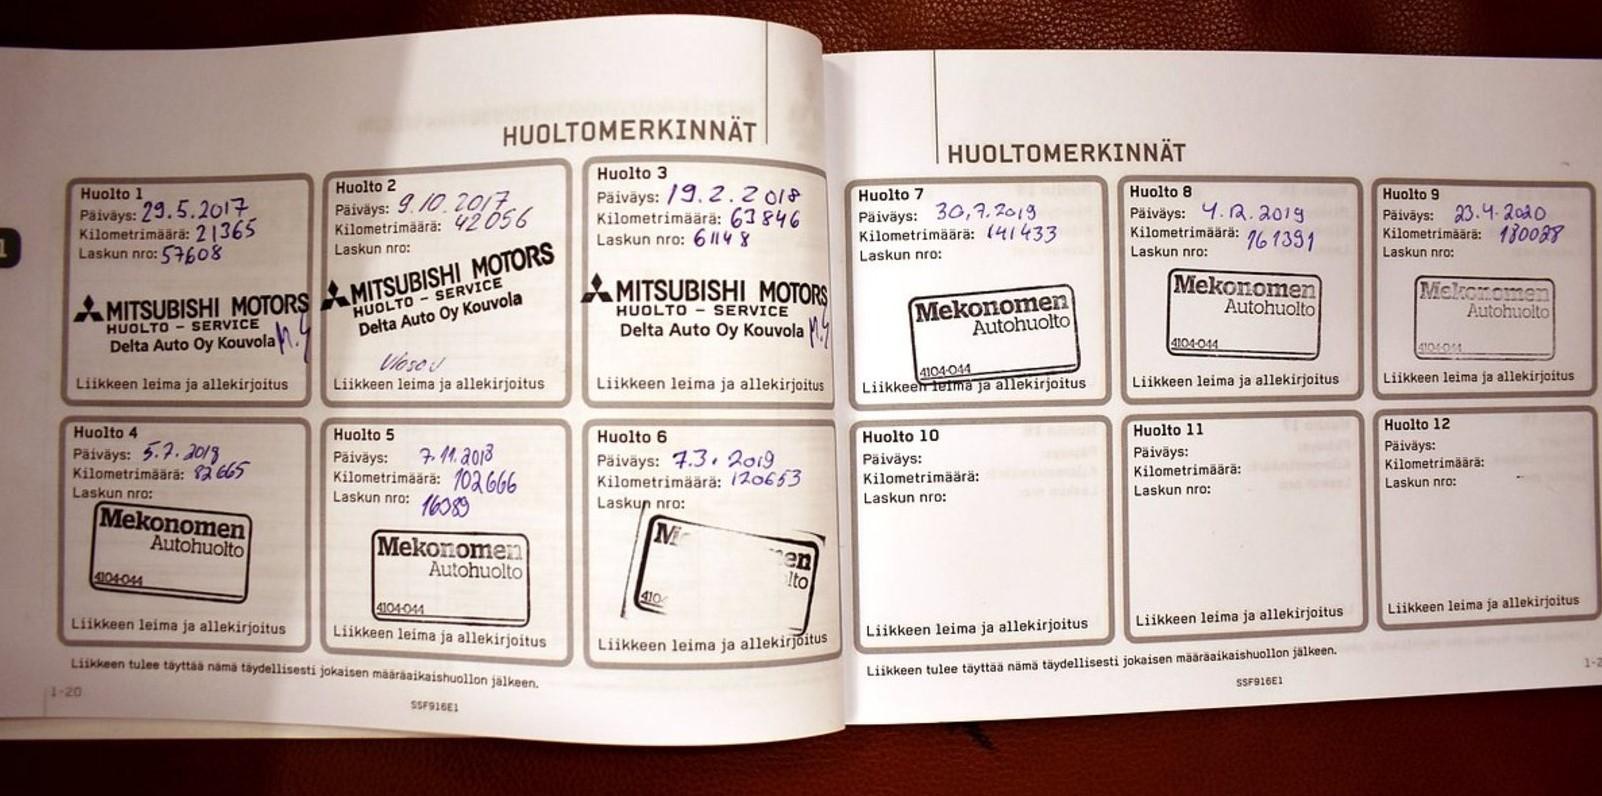 HUOLTOMERKINNÄT
Huolto 1
Päiväys: 29.5.2017
Kilometrimäärä: 21365
Laskun nro: 57608
MITSUBISHI MOTORS
HUOLTO - SERVICE
Delta Auto Oy Kouvola
Liikkeen leima ja allekirjoitus
Huolto 2
Päiväys: 9.10.2017
Kilometrimäärä: 42056
Laskun nro:
MITSUBISHI MOTORS
HUOLTO - SERVICE
Delta Auto Oy Kouvola
Liikkeen leima ja allekirjoitus
Huolto 3
Päiväys: 19.2.2018
Kilometrimäärä: 63846
Laskun nro: 61148
MITSUBISHI MOTORS
HUOLTO - SERVICE
Delta Auto Oy Kouvola
Liikkeen leima ja allekirjoitus
Huolto 4
Päiväys: 5.7.2018
Kilometrimäärä: 82665
Laskun nro:
Mekonomen
Autohuolto
4104-044
Liikkeen leima ja allekirjoitus
Huolto 5
Päiväys: 7.11.2018
Kilometrimäärä: 102666
Laskun nro: 16089
Mekonomen
Autohuolto
4104-044
Liikkeen leima ja allekirjoitus
Huolto 6
Päiväys: 7.3.2019
Kilometrimäärä: 120653
Laskun nro:
Liikkeen leima ja allekirjoitus
Liikkeen tulee täyttää nämä täydellisesti jokaisen määräaikaishuollon jälkeen.
1-20
SSF916E1
HUOLTOMERKINNÄT
Huolto 7
Päiväys: 30.7.2019
Kilometrimäärä: 141433
Laskun nro:
Mekonomen
Autohuolto
4104-044
Liikkeen leima ja allekirjoitus
Huolto 8
Päiväys: 4.12.2019
Kilometrimäärä: 161391
Laskun nro:
Mekonomen
Autohuolto
4104-044
Liikkeen leima ja allekirjoitus
Huolto 9
Päiväys: 23.4.2020
Kilometrimäärä: 180028
Laskun nro:
Mekonomen
Autohuolto
4104-044
Liikkeen leima ja allekirjoitus
Huolto 10
Päiväys:
Kilometrimäärä:
Laskun nro:
Liikkeen leima ja allekirjoitus
Huolto 11
Päiväys:
Kilometrimäärä:
Laskun nro:
Liikkeen leima ja allekirjoitus
Huolto 12
Päiväys:
Kilometrimäärä:
Laskun nro:
Liikkeen leima ja allekirjoitus
Liikkeen tulee täyttää nämä täydellisesti jokaisen määräaikaishuollon jälkeen.
SSF916E1